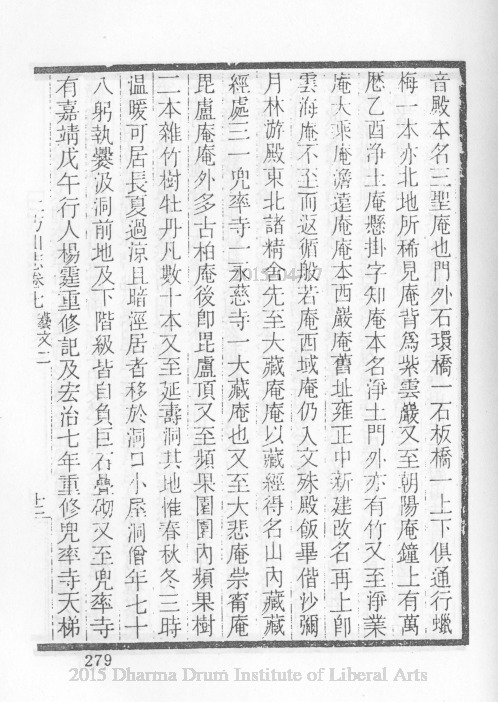 音殿本名三聖庵也門外石環橋一石板橋一上下俱通行蠟
梅一本亦北地所稀見庵背爲紫雲巖又至朝陽庵鐘上有萬
厯乙酉淨土庵懸掛字知庵本名淨土門外亦有竹又至淨業
庵大乘庵澹遠庵庵本西嚴庵舊址雍正中新建改名再上卽
雲海庵不至而返循般若庵西域庵仍入文殊殿飯畢偕沙彌
月林游殿東北諸精舍先至大藏庵庵以藏經得名山內藏藏
經處三一兜率寺一永慈寺一大藏庵也又至大悲庵崇甯庵
毘盧庵庵外多古柏庵後卽毘盧頂又至頻果園園內頻果樹
二本雜竹樹牡丹凡數十本又至延壽洞其地惟春秋冬三時
温暖可居長夏過涼且暗溼居者移於洞口小屋洞僧年七十
八躬執爨汲洞前地及下階級皆自負巨石疊砌又至兜率寺
有嘉靖戊午行人楊霆重修記及宏治七年重修兜率寺天梯
上方山志卷七 藝文二
279
2015 Dharma Drum Institute of Liberal Arts